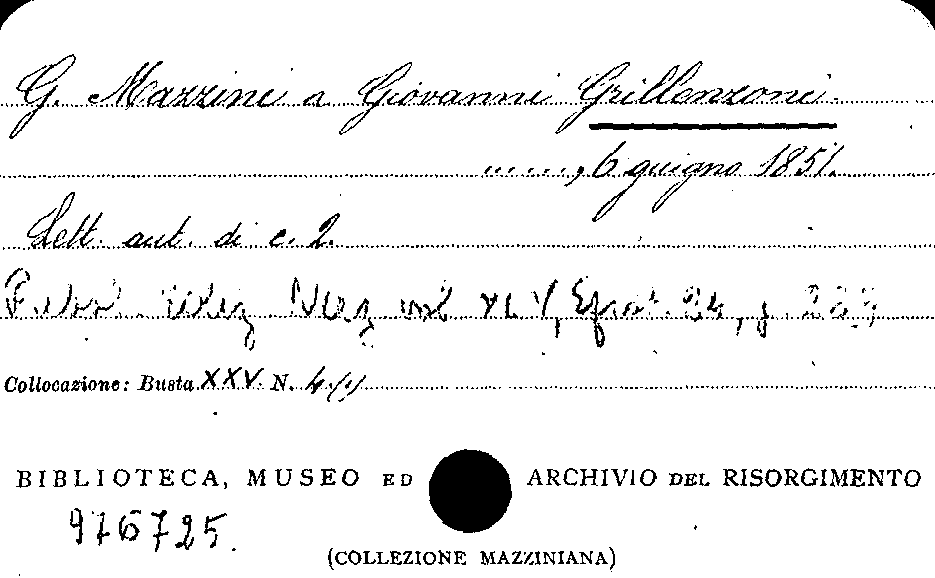 G. Mazzini a Giovanni Grillenzoni.
......, 6 giugno 1851.
Lett. aut. di c. 2.
Pubbl. Naz vol XLV, Epist. 24, p.
Collocazione: Busta XXV N. 4
BIBLIOTECA, MUSEO ED ARCHIVIO DEL RISORGIMENTO
976725.
(COLLEZIONE MAZZINIANA)